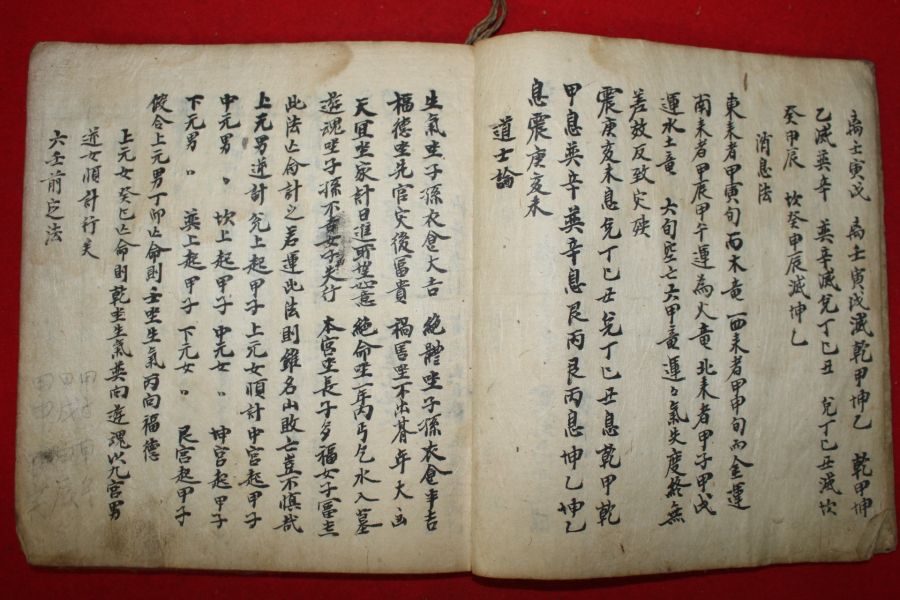 离壬寅戌　离壬寅戌滅乾甲坤乙　乾甲坤
乙滅巽辛　巽辛滅兌丁巳丑　兌丁巳丑滅坎
癸甲辰　坎癸甲辰滅坤乙
消息法
東来者甲寅旬而木竜　西来者甲申旬而金運
南来者甲辰甲午運為火竜　北来者甲子甲戌
運水土竜　大旬空亡六甲竜運々氣失度終無
善故反致灾殃
震庚亥未息兌丁巳丑　兌丁巳丑息乾甲　乾
甲息巽辛　巽辛息艮丙　艮丙息坤乙　坤乙
息震庚亥未
道士論
生氣坐子孫衣食大吉　絶體坐子孫衣食事吉
福德坐先官灾後冨貴　禍害坐不出朞年大凶
天冝坐家計日進所望如意　絶命坐一年內丐乞水入墓
遊魂坐子孫不吉女子失行　本宮坐長子多福女子冨吉
此法亡命計之若運此法則雖名山敗亡豈不慎哉
上元男逆計兌上起甲子　上元女順計中宮起甲子
中元男〃　坎上起甲子　中元女〃　坤宮起甲子
下元男〃　巽上起甲子　下元女〃　艮宮起甲子
假令上元男丁卯亡命則壬坐生氣丙向福德
上元女癸巳亡命則乾坐生氣巽向遊魂以九宮男
逆女順計行矣
六壬前定法